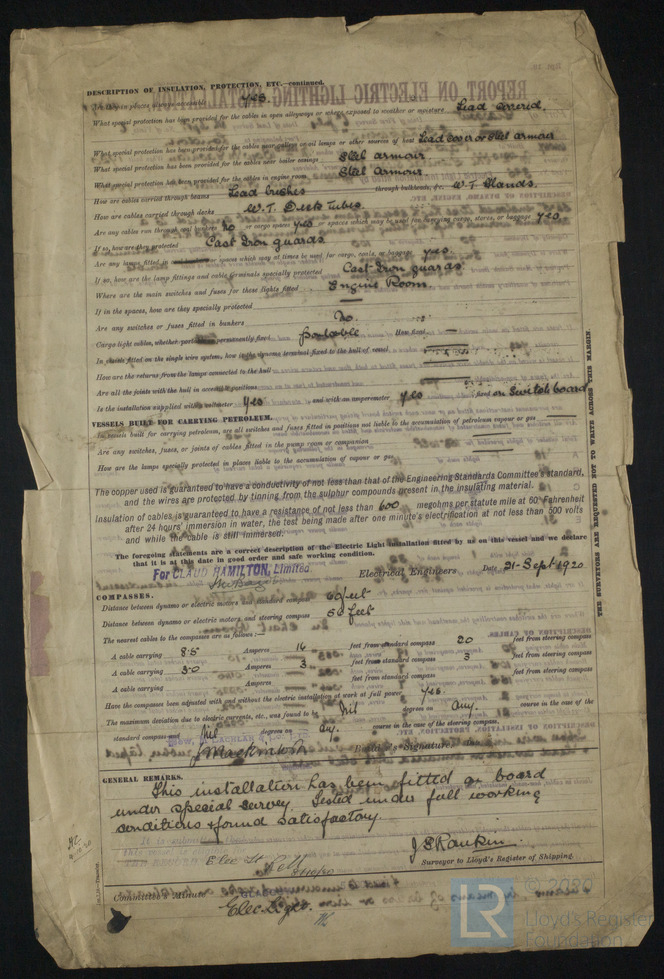 DESCRIPTION OF INSULATION, PROTECTION, ETC.—continued.
places always accessible yes.
What special protection has been provided for the cables in open alleyways or where exposed to weather or moisture Lead covered.
What special protection has been provided for the cables near galleys or oil lamps or other sources of heat Lead cover or Steel armour
What special protection has been provided for the cables near boiler casings Steel armour
What special protection has been provided for the cables in engine room Steel Armour.
How are cables carried through beams Lead bushes through bulkheads, &c. W.T. Glands.
How are cables carried through decks W.T. Deck Tubes
Are any cables run through coal bunkers no or cargo spaces yes or spaces which may be used for carrying cargo, stores, or baggage yes
If so, how are they protected Cast Iron guards
Are any lamps fitted in or spaces which may at times be used for cargo, coals, or baggage yes.
If so, how are the lamp fittings and cable terminals specially protected Cast Iron guards
Where are the main switches and fuses for these lights fitted Engine Room
If in the spaces, how are they specially protected —
Are any switches or fuses fitted in bunkers No
Cargo light cables, whether portable or permanently fixed portable How fixed —
In vessels fitted on the single wire system, how is the dynamo terminal fixed to the hull of vessel
How are the returns from the lamps connected to the hull
Are all the joints with the hull in accessible positions
Is the installation supplied with a voltmeter yes and with an amperemeter yes fixed on Switch board
VESSELS BUILT FOR CARRYING PETROLEUM.
In vessels built for carrying petroleum, are all switches and fuses fitted in positions not liable to the accumulation of petroleum vapour or gas —
Are any switches, fuses, or joints of cables fitted in the pump room or companion
How are the lamps specially protected in places liable to the accumulation of vapour or gas
The copper used is guaranteed to have a conductivity of not less than that of the Engineering Standards Committee's standard,
and the wires are protected by tinning from the sulphur compounds present in the insulating material.
Insulation of cables is guaranteed to have a resistance of not less than 600 megohms per statute mile at 60° Fahrenheit
after 24 hours' immersion in water, the test being made after one minute's electrification at not less than 500 volts
and while the cable is still immersed.
The foregoing statements are a correct description of the Electric Light installation fitted by us on this vessel and we declare
that it is at this date in good order and safe working condition.
For CLAUD HAMILTON, Limited.
Electrical Engineers Date 21-Sept 1920
COMPASSES.
Distance between dynamo or electric motors and standard compass 60 feet
Distance between dynamo or electric motors and steering compass 56 feet
The nearest cables to the compasses are as follows:—
A cable carrying 8.5 Amperes 16 feet from standard compass 20 feet from steering compass
A cable carrying 3.0 Amperes 3 feet from standard compass 3 feet from steering compass
A cable carrying Amperes feet from standard compass feet from steering compass
Have the compasses been adjusted with and without the electric installation at work at full power yes.
The maximum deviation due to electric currents, etc., was found to be Nil degrees on any. course in the case of the
standard compass and Nil degrees on any. course in the case of the steering compass.
Builder's Signature. Date
GENERAL REMARKS.
This installation has been fitted on board
under special survey. Tested under full working
conditions & found satisfactory.
J E Rankin
Surveyor to Lloyd's Register of Shipping.
Elec Lt
Committee's Minute
Elec. Light.
THE SURVEYORS ARE REQUESTED NOT TO WRITE ACROSS THIS MARGIN.
LR
© 2020
Lloyd's Register
Foundation